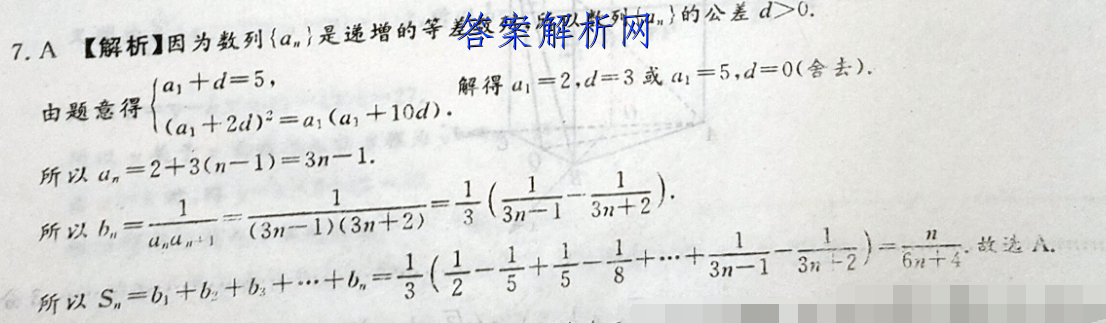 7. A 【解析】因为数列{aₙ}是递增的等差数列,所以数列{aₙ}的公差 d>0.
答案解析网
由题意得{a₁+d=5, (a₁+2d)²=a₁(a₁+10d). 解得 a₁=2,d=3 或 a₁=5,d=0(舍去).
所以 aₙ=2+3(n-1)=3n-1.
所以 bₙ=1/(aₙaₙ₊₁)=1/((3n-1)(3n+2))=1/3(1/(3n-1)-1/(3n+2)).
所以 Sₙ=b₁+b₂+b₃+⋯+bₙ=1/3(1/2-1/5+1/5-1/8+⋯+1/(3n-1)-1/(3n+2))=n/(6n+4).故选 A.